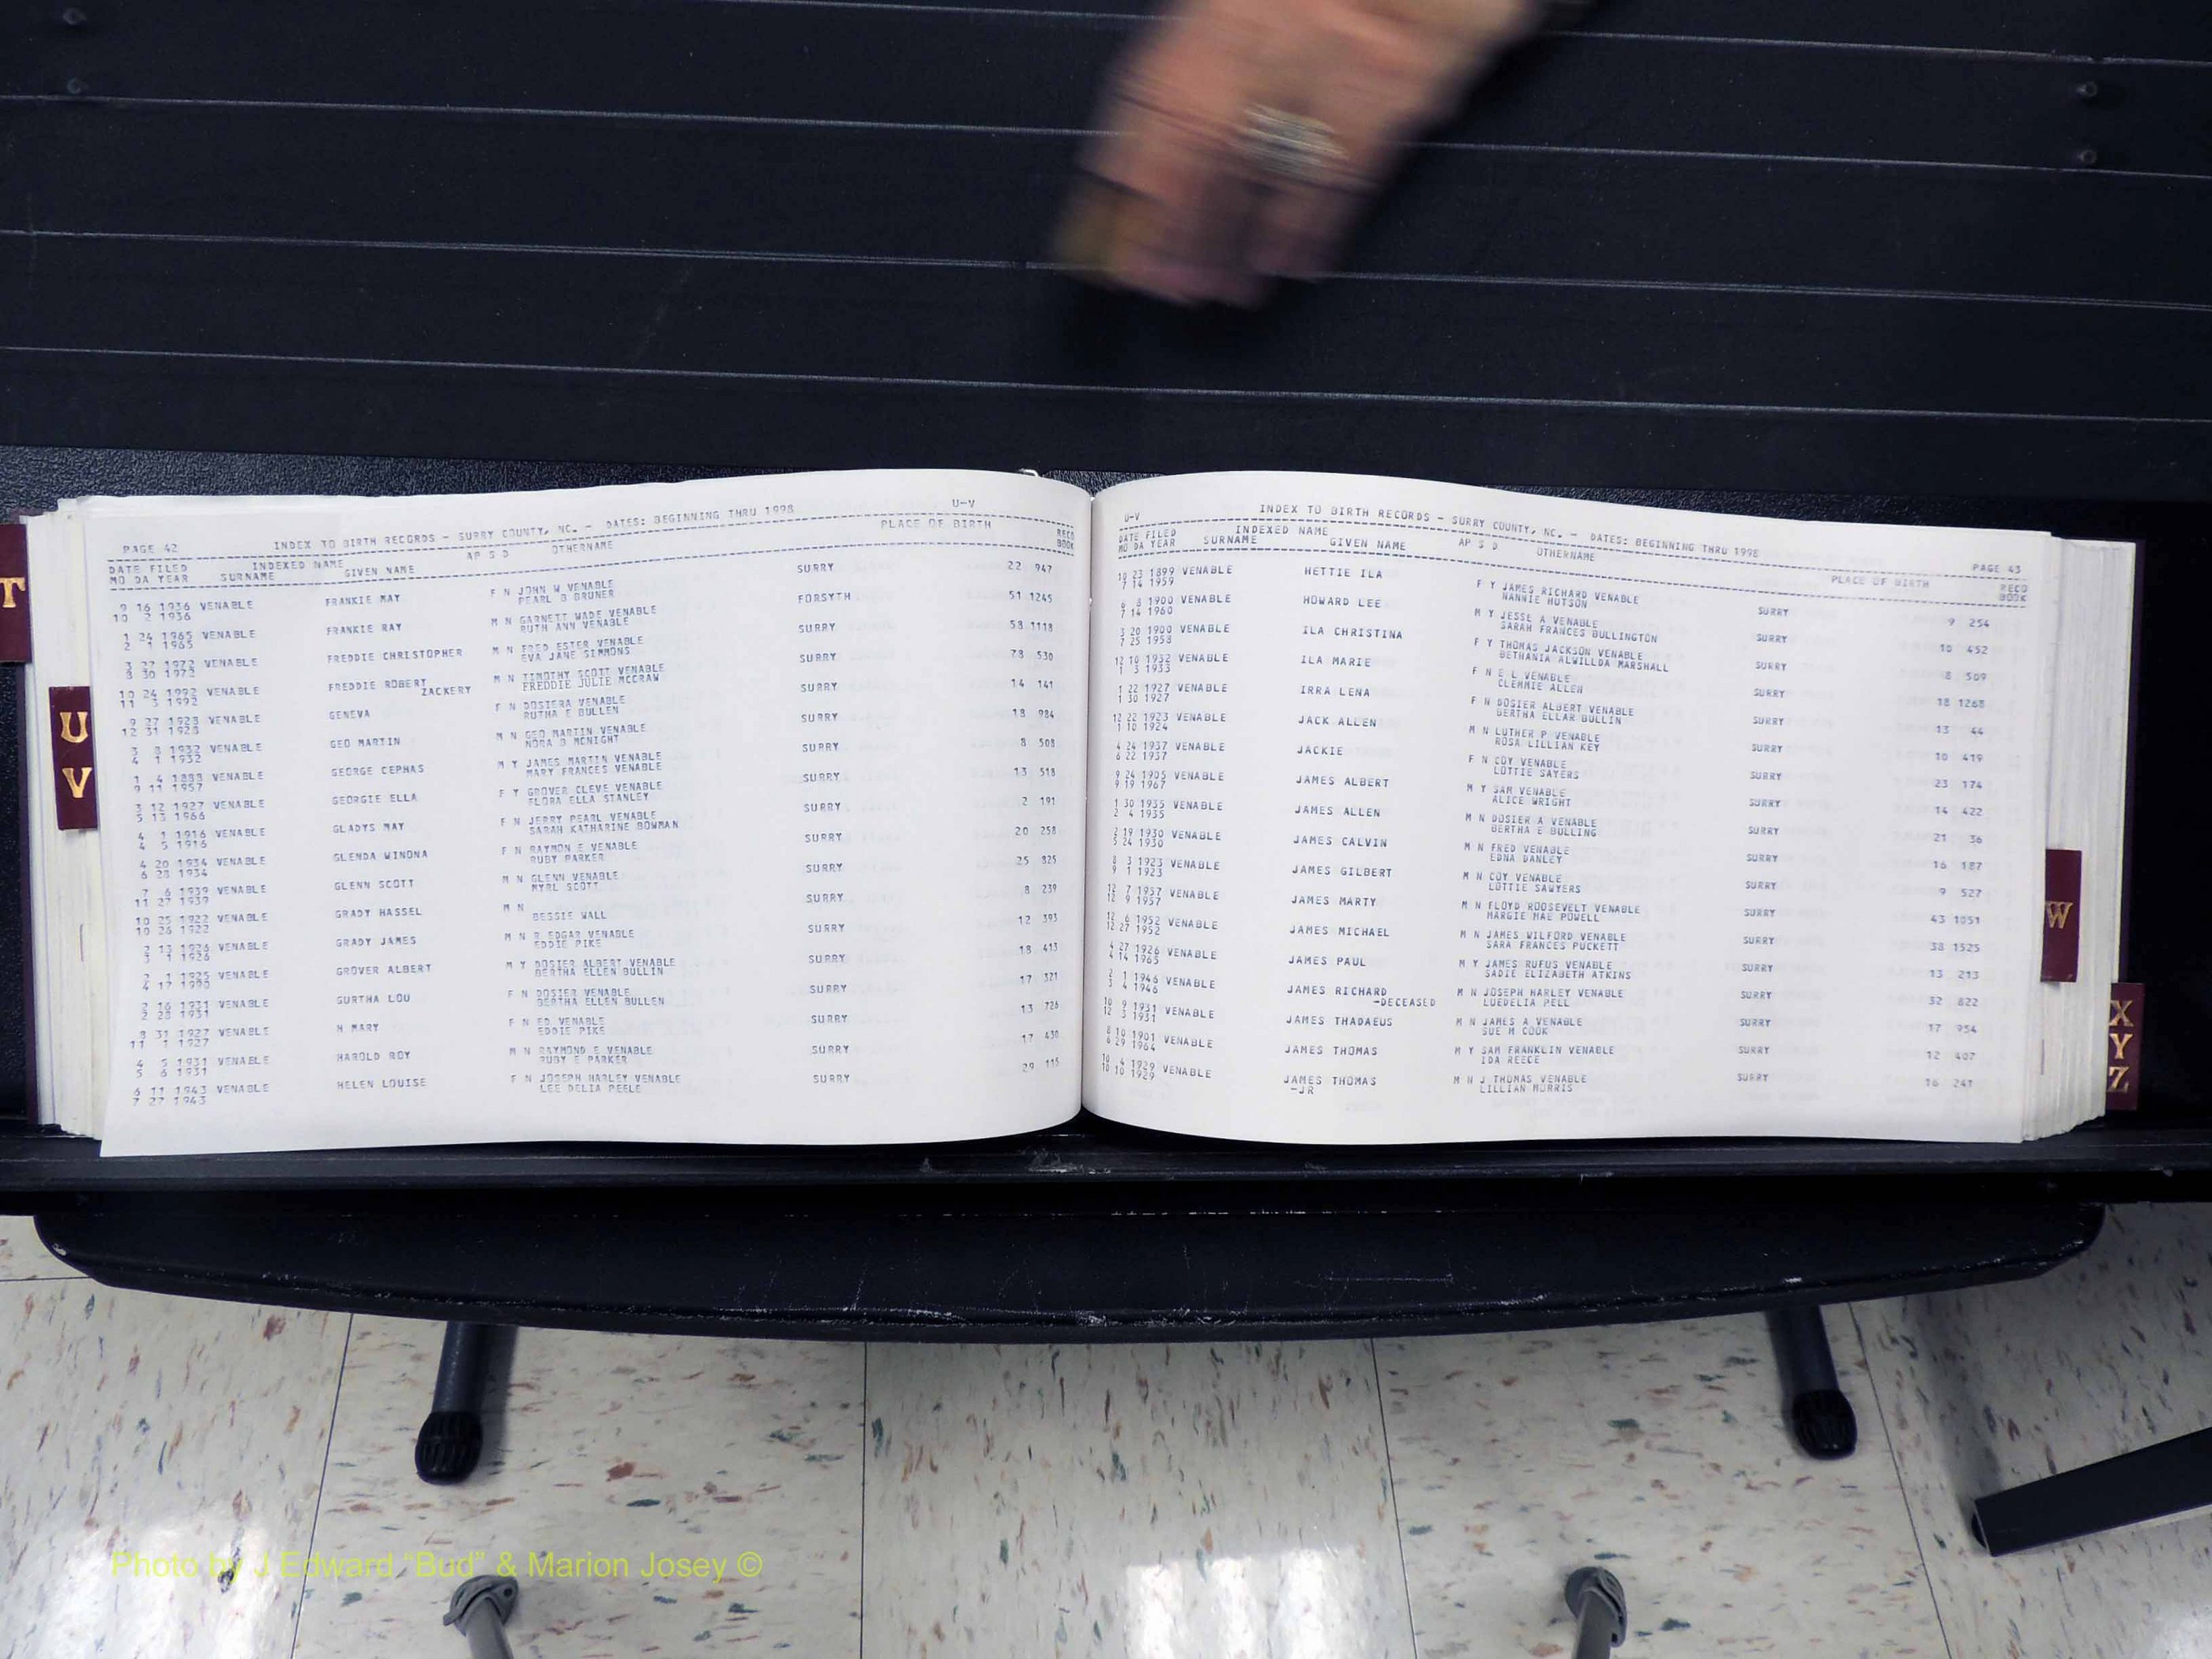 T
U
V
W
X
Y
Z
PAGE 42 INDEX TO BIRTH RECORDS - SURRY COUNTY, NC. - DATES: BEGINNING THRU 1998 U-V
DATE FILED INDEXED NAME PLACE OF BIRTH RECD
MO DA YEAR SURNAME GIVEN NAME AP S D OTHERNAME BOOK
9 16 1936 VENABLE FRANKIE MAY F N JOHN W VENABLE SURRY 22 947
10 2 1936 PEARL B BRUNER
1 24 1965 VENABLE FRANKIE RAY M N GARNETT WADE VENABLE FORSYTH 51 1245
2 1 1965 RUTH ANN VENABLE
3 27 1972 VENABLE FREDDIE CHRISTOPHER M N FRED ESTER VENABLE SURRY 58 1118
8 30 1972 EVA JANE SIMMONS
10 24 1992 VENABLE FREDDIE ROBERT M N TIMOTHY SCOTT VENABLE SURRY 78 530
11 3 1992 ZACKERY FREDDIE JULIE MCCRAW
9 27 1928 VENABLE GENEVA F N DOSIERA VENABLE SURRY 14 141
12 31 1928 RUTHA E BULLEN
3 8 1932 VENABLE GEO MARTIN M N GEO MARTIN VENABLE SURRY 18 984
4 1 1932 NORA B MCNIGHT
1 4 1888 VENABLE GEORGE CEPHAS M Y JAMES MARTIN VENABLE SURRY 8 508
9 11 1957 MARY FRANCES VENABLE
3 12 1927 VENABLE GEORGIE ELLA F Y GROVER CLEVE VENABLE SURRY 13 518
5 13 1966 FLORA ELLA STANLEY
4 1 1916 VENABLE GLADYS MAY F N JERRY PEARL VENABLE SURRY 2 191
4 5 1916 SARAH KATHARINE BOWMAN
4 20 1934 VENABLE GLENDA WINONA F N RAYMON E VENABLE SURRY 20 258
6 28 1934 RUBY PARKER
7 6 1939 VENABLE GLENN SCOTT M N GLENN VENABLE SURRY 25 825
11 27 1939 MYRL SCOTT
10 25 1922 VENABLE GRADY HASSEL M N SURRY 8 239
10 26 1922 BESSIE WALL
2 13 1926 VENABLE GRADY JAMES M N R EDGAR VENABLE SURRY 12 393
3 1 1926 EDDIE PIKE
2 1 1925 VENABLE GROVER ALBERT M Y DOSIER ALBERT VENABLE SURRY 18 413
4 17 1990 BERTHA ELLEN BULLIN
2 16 1931 VENABLE GURTHA LOU F N DOSIER VENABLE SURRY 17 321
2 28 1931 BERTHA ELLEN BULLEN
8 31 1927 VENABLE H MARY F N ED VENABLE SURRY 13 726
11 1 1927 EDDIE PIKE
4 5 1931 VENABLE HAROLD ROY M N RAYMOND E VENABLE SURRY 17 430
5 6 1931 RUBY E PARKER
6 11 1943 VENABLE HELEN LOUISE F N JOSEPH HARLEY VENABLE SURRY 29 115
7 27 1943 LEE DELIA PEELE
U-V INDEX TO BIRTH RECORDS - SURRY COUNTY, NC. - DATES: BEGINNING THRU 1998 PAGE 43
DATE FILED INDEXED NAME PLACE OF BIRTH RECD
MO DA YEAR SURNAME GIVEN NAME AP S D OTHERNAME BOOK
10 23 1899 VENABLE HETTIE ILA F Y JAMES RICHARD VENABLE SURRY 9 254
7 14 1959 NANNIE HUTSON
6 8 1900 VENABLE HOWARD LEE M Y JESSE A VENABLE SURRY 10 452
7 14 1960 SARAH FRANCES BULLINGTON
3 20 1900 VENABLE ILA CHRISTINA F Y THOMAS JACKSON VENABLE SURRY 8 509
7 25 1958 BETHANIA ALWILLDA MARSHALL
12 10 1932 VENABLE ILA MARIE F N E L VENABLE SURRY 18 1268
1 3 1933 CLEMMIE ALLEN
1 22 1927 VENABLE IRRA LENA F N DOSIER ALBERT VENABLE SURRY 13 44
1 30 1927 BERTHA ELLAR BULLIN
12 22 1923 VENABLE JACK ALLEN M N LUTHER P VENABLE SURRY 10 419
1 10 1924 ROSA LILLIAN KEY
4 24 1937 VENABLE JACKIE F N COY VENABLE SURRY 23 174
6 22 1937 LOTTIE SAYERS
9 24 1905 VENABLE JAMES ALBERT M Y SAM VENABLE SURRY 14 422
9 19 1967 ALICE WRIGHT
1 30 1935 VENABLE JAMES ALLEN M N DOSIER A VENABLE SURRY 21 36
2 4 1935 BERTHA E BULLING
2 19 1930 VENABLE JAMES CALVIN M N FRED VENABLE SURRY 16 187
5 24 1930 EDNA DANLEY
8 3 1923 VENABLE JAMES GILBERT M N COY VENABLE SURRY 9 527
9 1 1923 LOTTIE SAWYERS
12 7 1957 VENABLE JAMES MARTY M N FLOYD ROOSEVELT VENABLE SURRY 43 1051
12 9 1957 MARGIE MAE POWELL
12 6 1952 VENABLE JAMES MICHAEL M N JAMES WILFORD VENABLE SURRY 38 1525
12 27 1952 SARA FRANCES PUCKETT
4 27 1926 VENABLE JAMES PAUL M Y JAMES RUFUS VENABLE SURRY 13 213
4 14 1965 SADIE ELIZABETH ATKINS
2 1 1946 VENABLE JAMES RICHARD M N JOSEPH HARLEY VENABLE SURRY 32 822
3 4 1946 -DECEASED LUEDELIA PELL
10 9 1931 VENABLE JAMES THADAEUS M N JAMES A VENABLE SURRY 17 954
12 3 1931 SUE M COOK
8 10 1901 VENABLE JAMES THOMAS M Y SAM FRANKLIN VENABLE SURRY 12 407
6 29 1964 IDA REECE
10 4 1929 VENABLE JAMES THOMAS M N J THOMAS VENABLE SURRY 16 241
10 10 1929 -JR LILLIAN MORRIS
Photo by J Edward “Bud” & Marion Josey ©